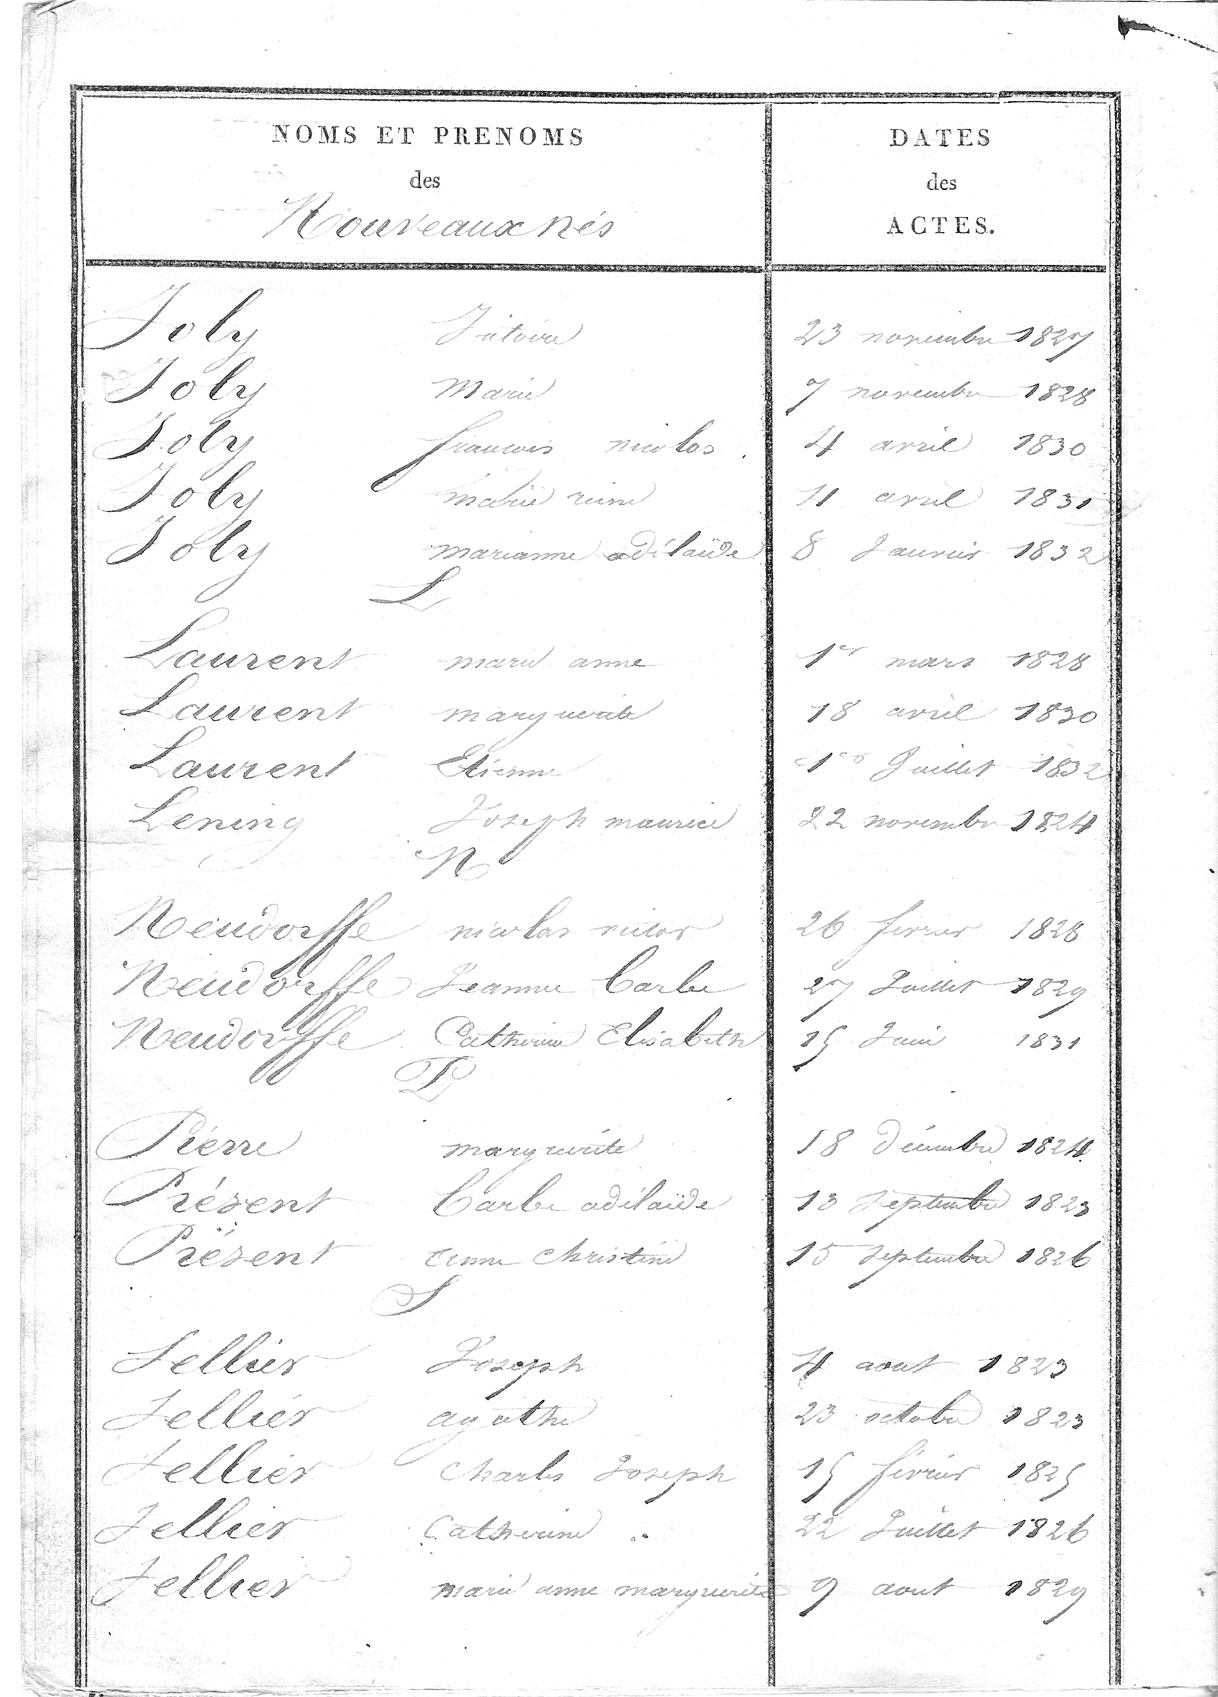 NOMS ET PRENOMS
des
Nouveaux nés
DATES
des
ACTES.
Joly 23 novembre 1827
Joly Marie 7 novembre 1828
Joly francois nicolas. 4 avril 1830
Joly marie reine 11 avril 1831
Joly marianne adélaïde 8 Janvier 1832
L
Laurent marie anne 1er mars 1828
Laurent marguerite 18 avril 1830
Laurent Etienne 1er Juillet 1832
Lening Joseph maurice 22 novembre 1824
N
Neudorffe nicolas victor 26 février 1828
Neudorffe Jeanne barbe 27 Juillet 1829
Neudorffe Catherine Elisabeth 15 Juin 1831
P
Piérre marguerite 18 décembre 1824
Présent barbe adélaïde 13 septembre 1823
Présent anne christine 15 septembre 1826
S
Sellier Joseph 4 aout 1823
Sellier agathe 23 octobre 1823
Sellier charles Joseph 15 février 1825
Sellier Catherine 22 Juillet 1826
Sellier marie anne marguerite 9 aout 1829